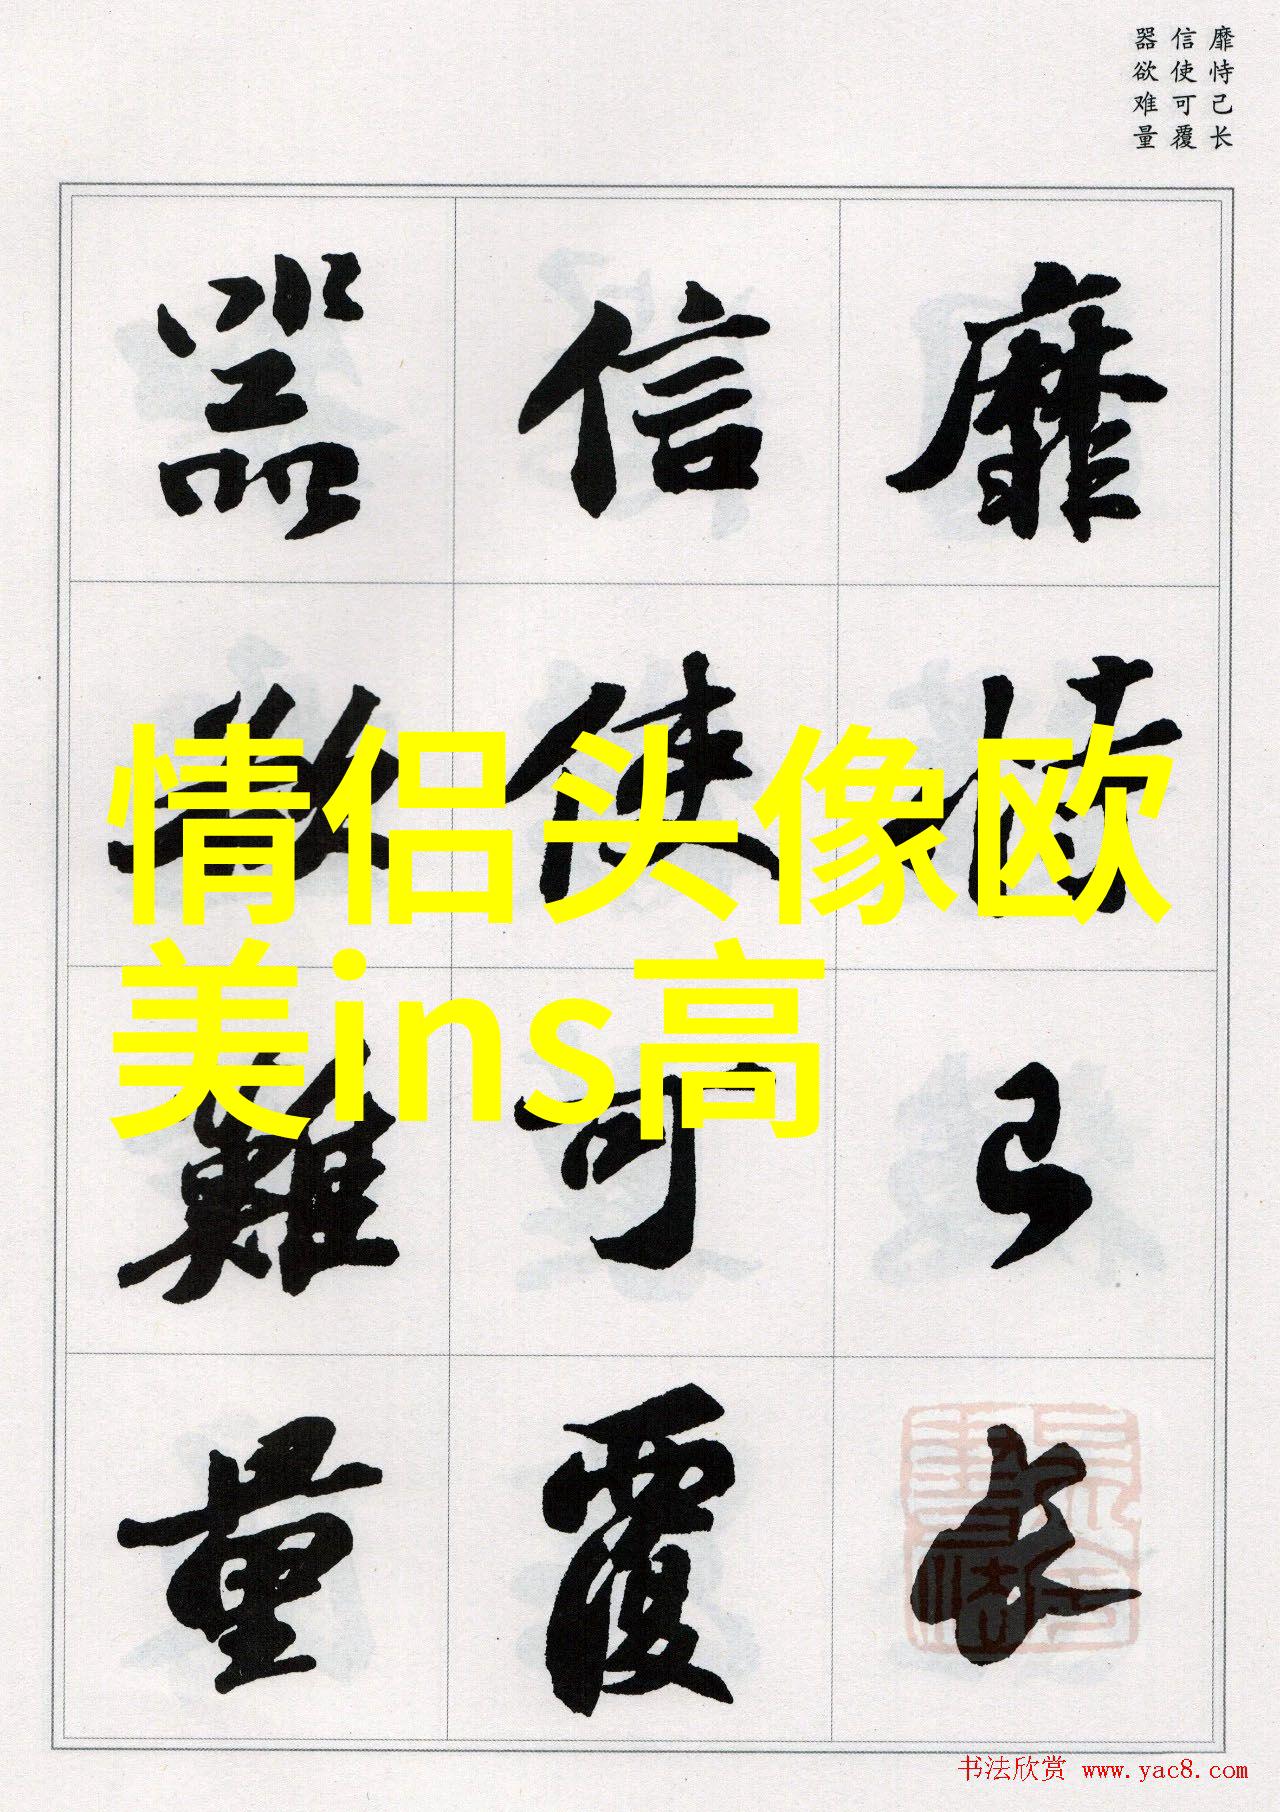 靡恃己长
信使可覆
器欲难量
靡恃己長
信使可覆
器欲難量
情侣头像欧
美ins高
书法欣赏 www.yac8.com